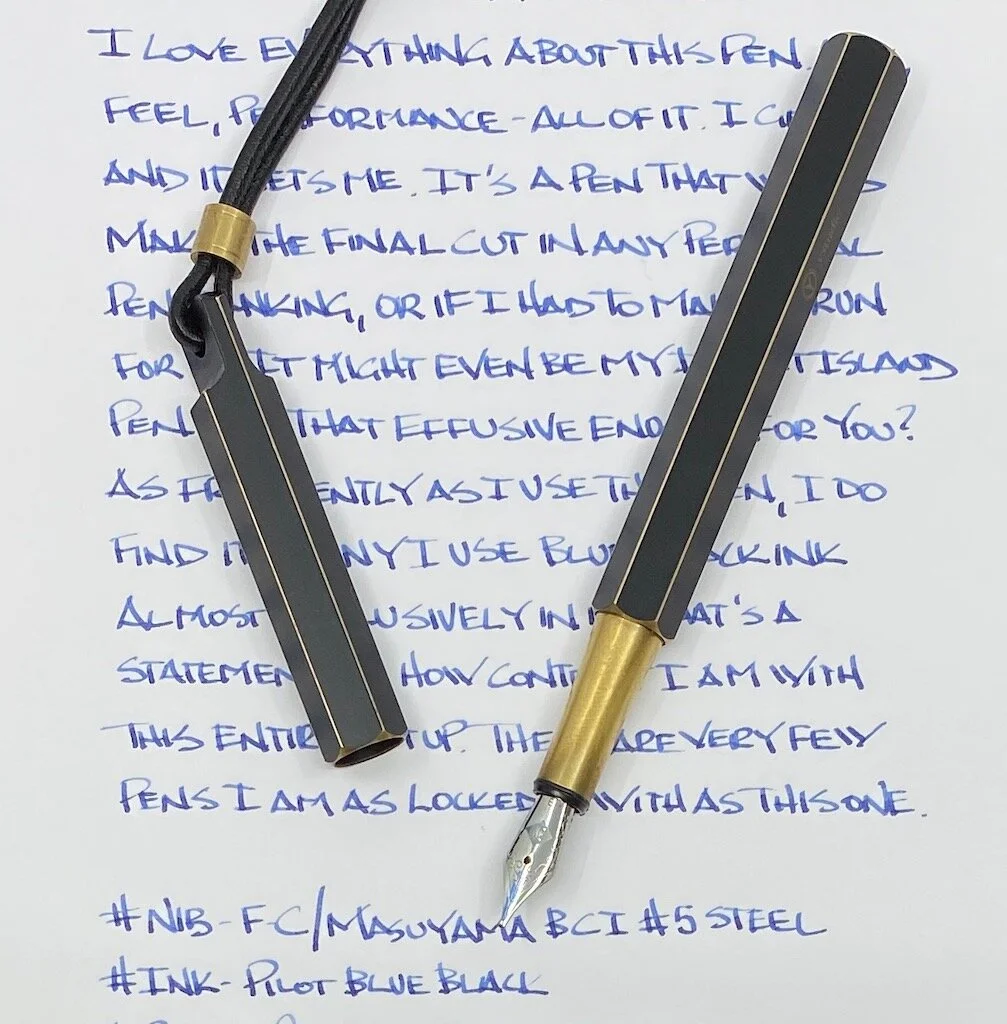 I LOVE EVERYTHING ABOUT THIS PEN.
FEEL, PERFORMANCE - ALL OF IT. I
AND IT GETS ME. IT'S A PEN THAT
MAKE THE FINAL CUT IN ANY PERSONAL
PEN RANKING, OR IF I HAD TO MAKE RUN
FOR IT MIGHT EVEN BE MY DESERT ISLAND
PEN THAT EFFUSIVE ENOUGH FOR YOU?
AS FREQUENTLY AS I USE THIS PEN, I DO
FIND IT FUNNY I USE BLUE BLACK INK
ALMOST EXCLUSIVELY IN IT. THAT'S A
STATEMENT HOW CONTENT I AM WITH
THIS ENTIRE SETUP. THERE ARE VERY FEW
PENS I AM AS LOCKED WITH AS THIS ONE.
#NIB - F-C/MASUYAMA BCI #5 STEEL
#INK - PILOT BLUE BLACK